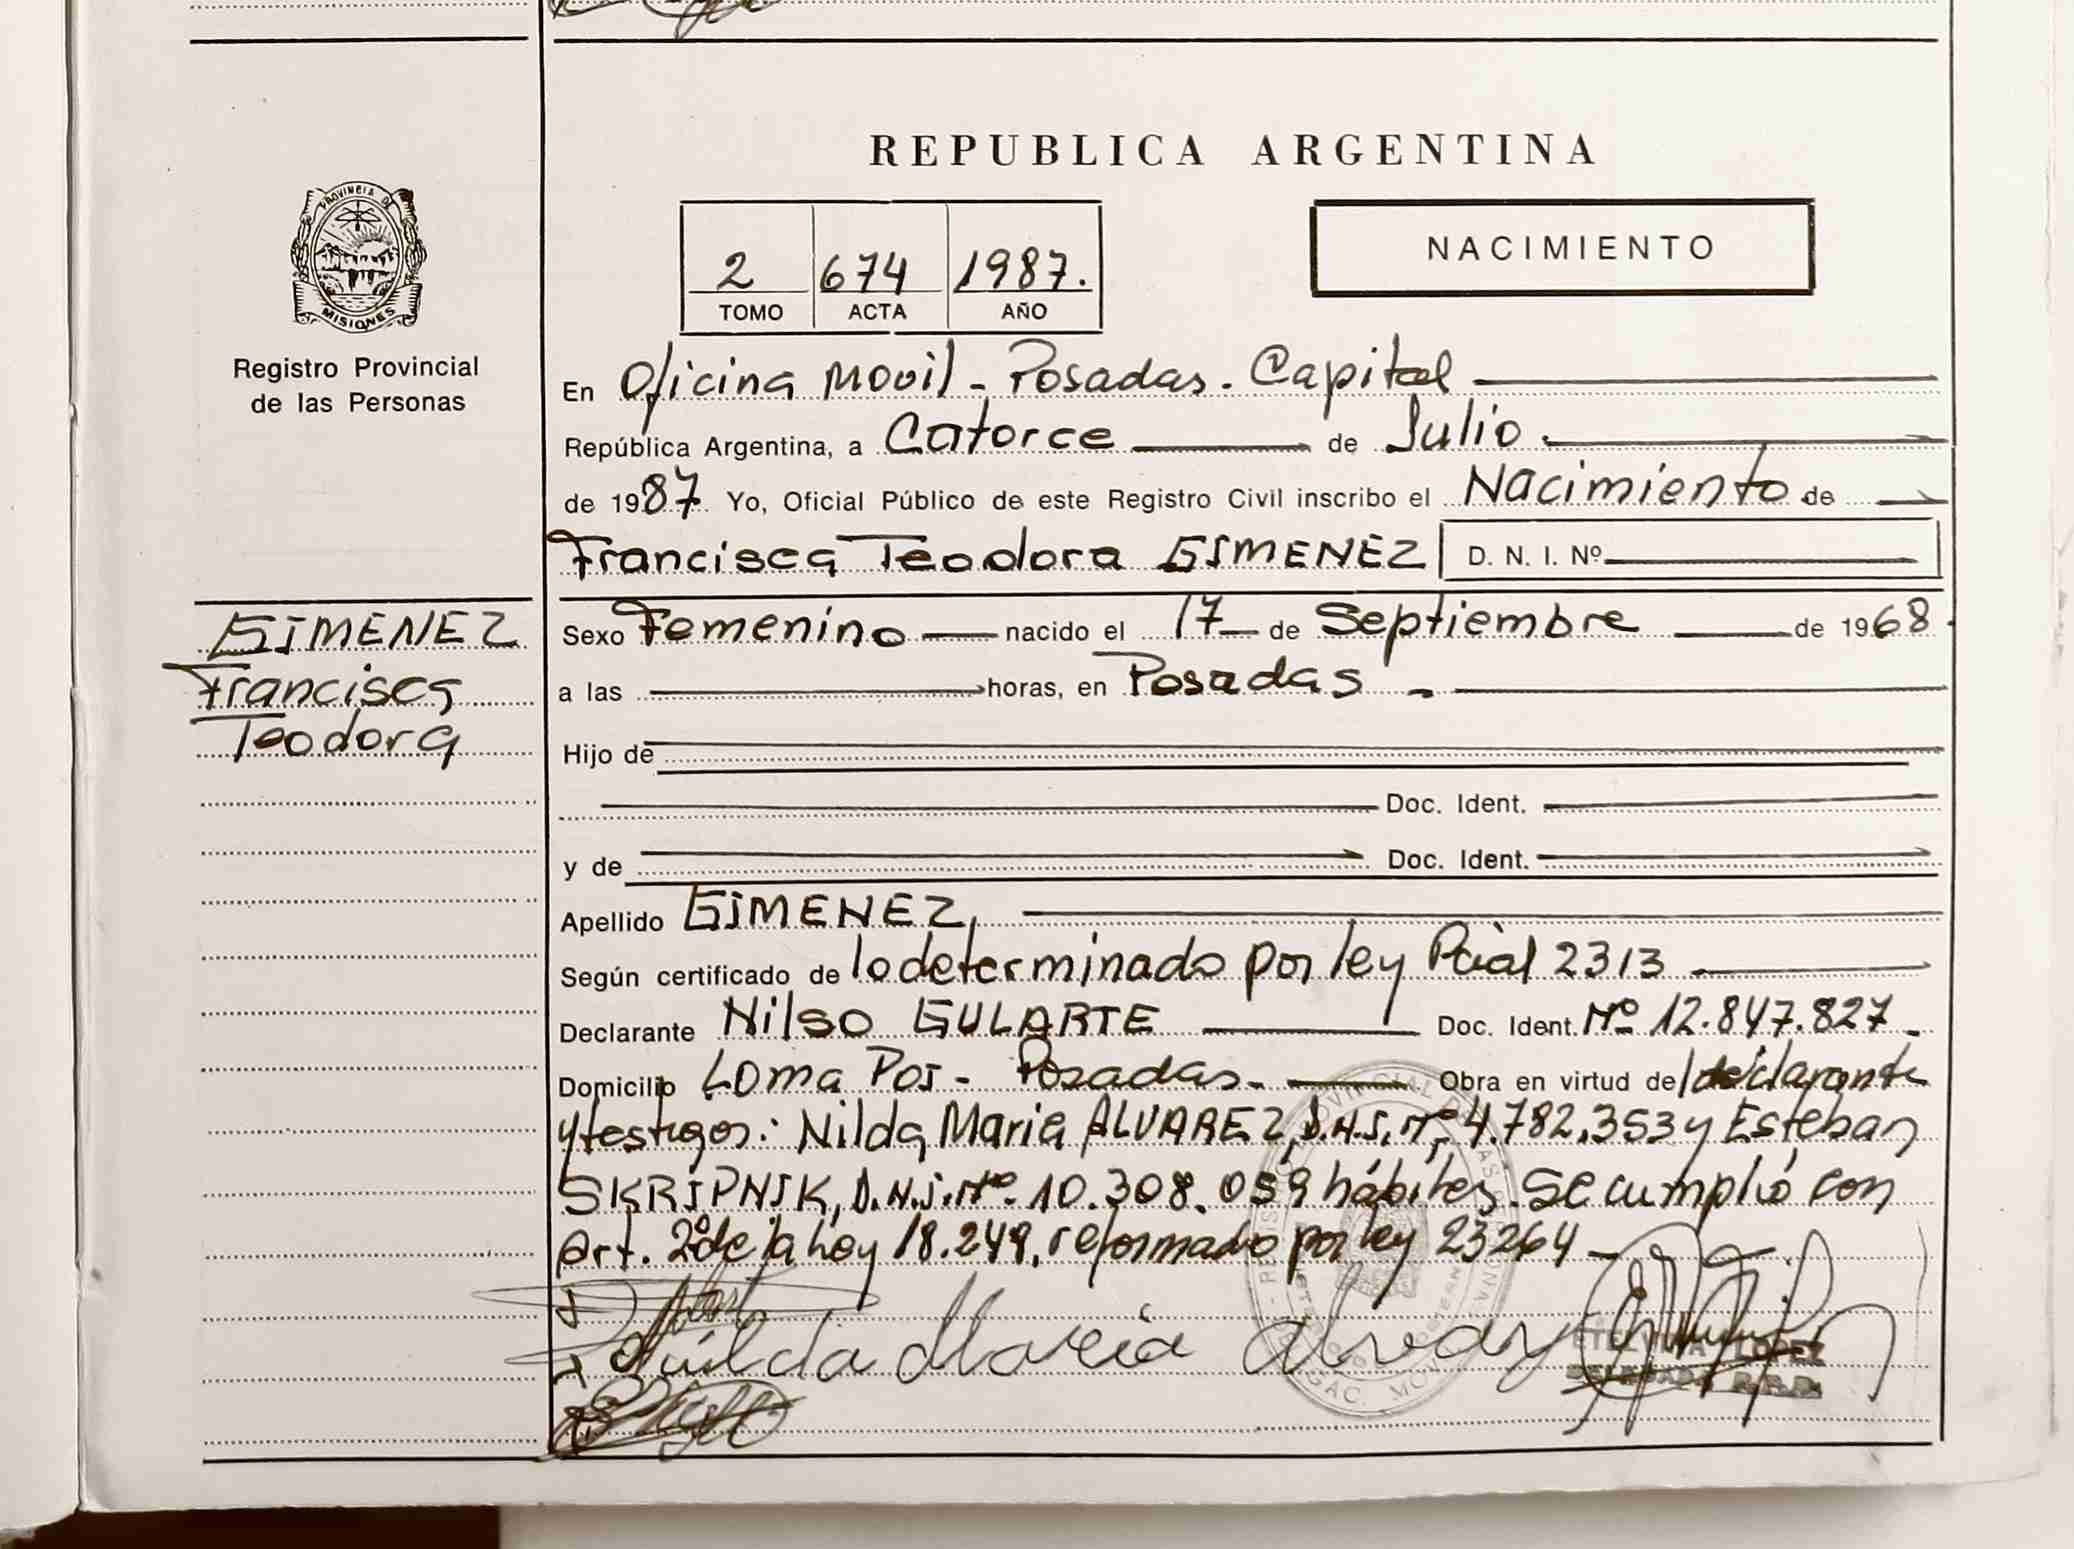 REPUBLICA ARGENTINA
PROVINCIA DE
MISIONES
Registro Provincial
de las Personas
2 674 1987.
TOMO ACTA AÑO
NACIMIENTO
En Oficina Movil - Posadas. Capital
República Argentina, a Catorce de Julio.
de 1987 Yo, Oficial Público de este Registro Civil inscribo el Nacimiento de
Francisca Teodora GIMENEZ D. N. I. Nº
GIMENEZ
Francisca
Teodora
Sexo Femenino nacido el 17 de Septiembre de 1968.
a las horas, en Posadas.
Hijo de
Doc. Ident.
y de Doc. Ident.
Apellido GIMENEZ,
Según certificado de lo determinado por ley Pcial 2313
Declarante Nilso GULARTE Doc. Ident. Nº 12.847.827.
Domicilio Loma Poi - Posadas. Obra en virtud de declarante
y testigos: Nilda Maria ALVAREZ, D.N.I. Nº 4.782.353 y Esteban
SKRIPNIK, D.N.I. Nº. 10.308.059 hábiles. Se cumplió con
art. 2º de la ley 18.249, reformado por ley 23264
Nilda Maria Alvarez
LOPEZ
DELEGADA R.P.P.